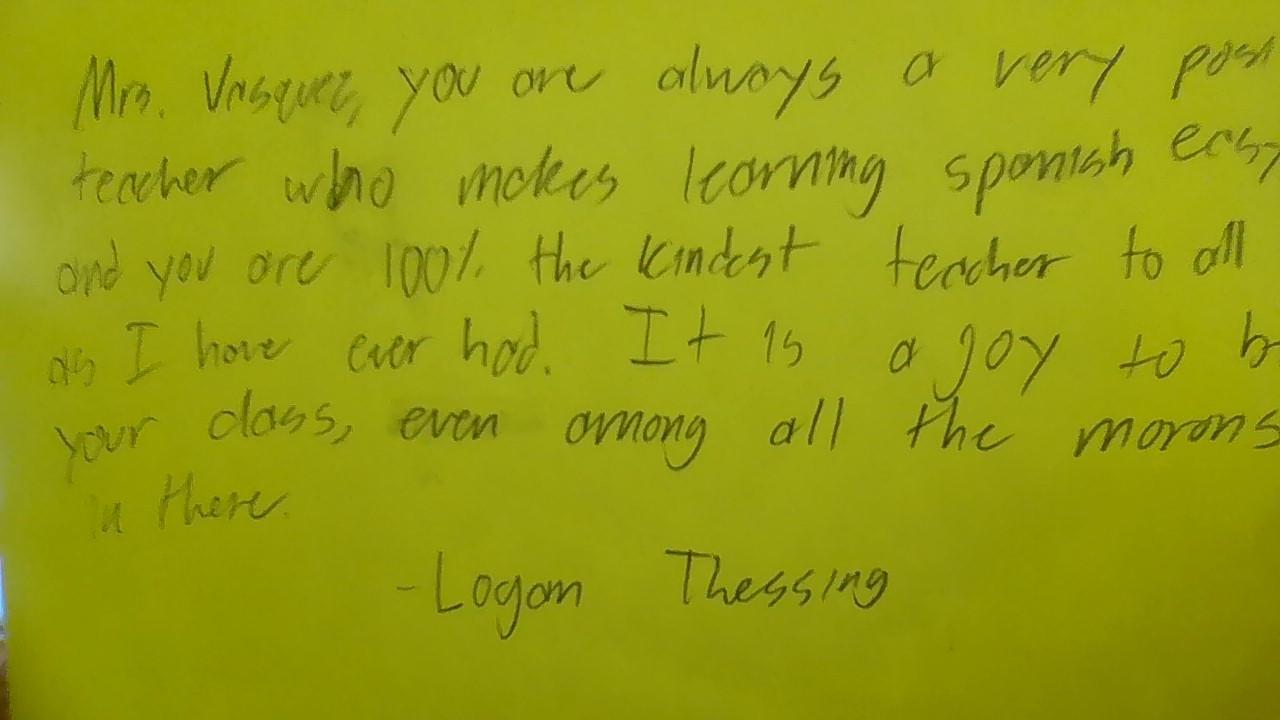 Mrs. Vasquez, you are always a very posi
teacher who makes learning spanish easy
and you are 100% the kindest teacher to all
as I have ever had. It is a joy to b
your class, even among all the morons
in there.
-Logan Thessing